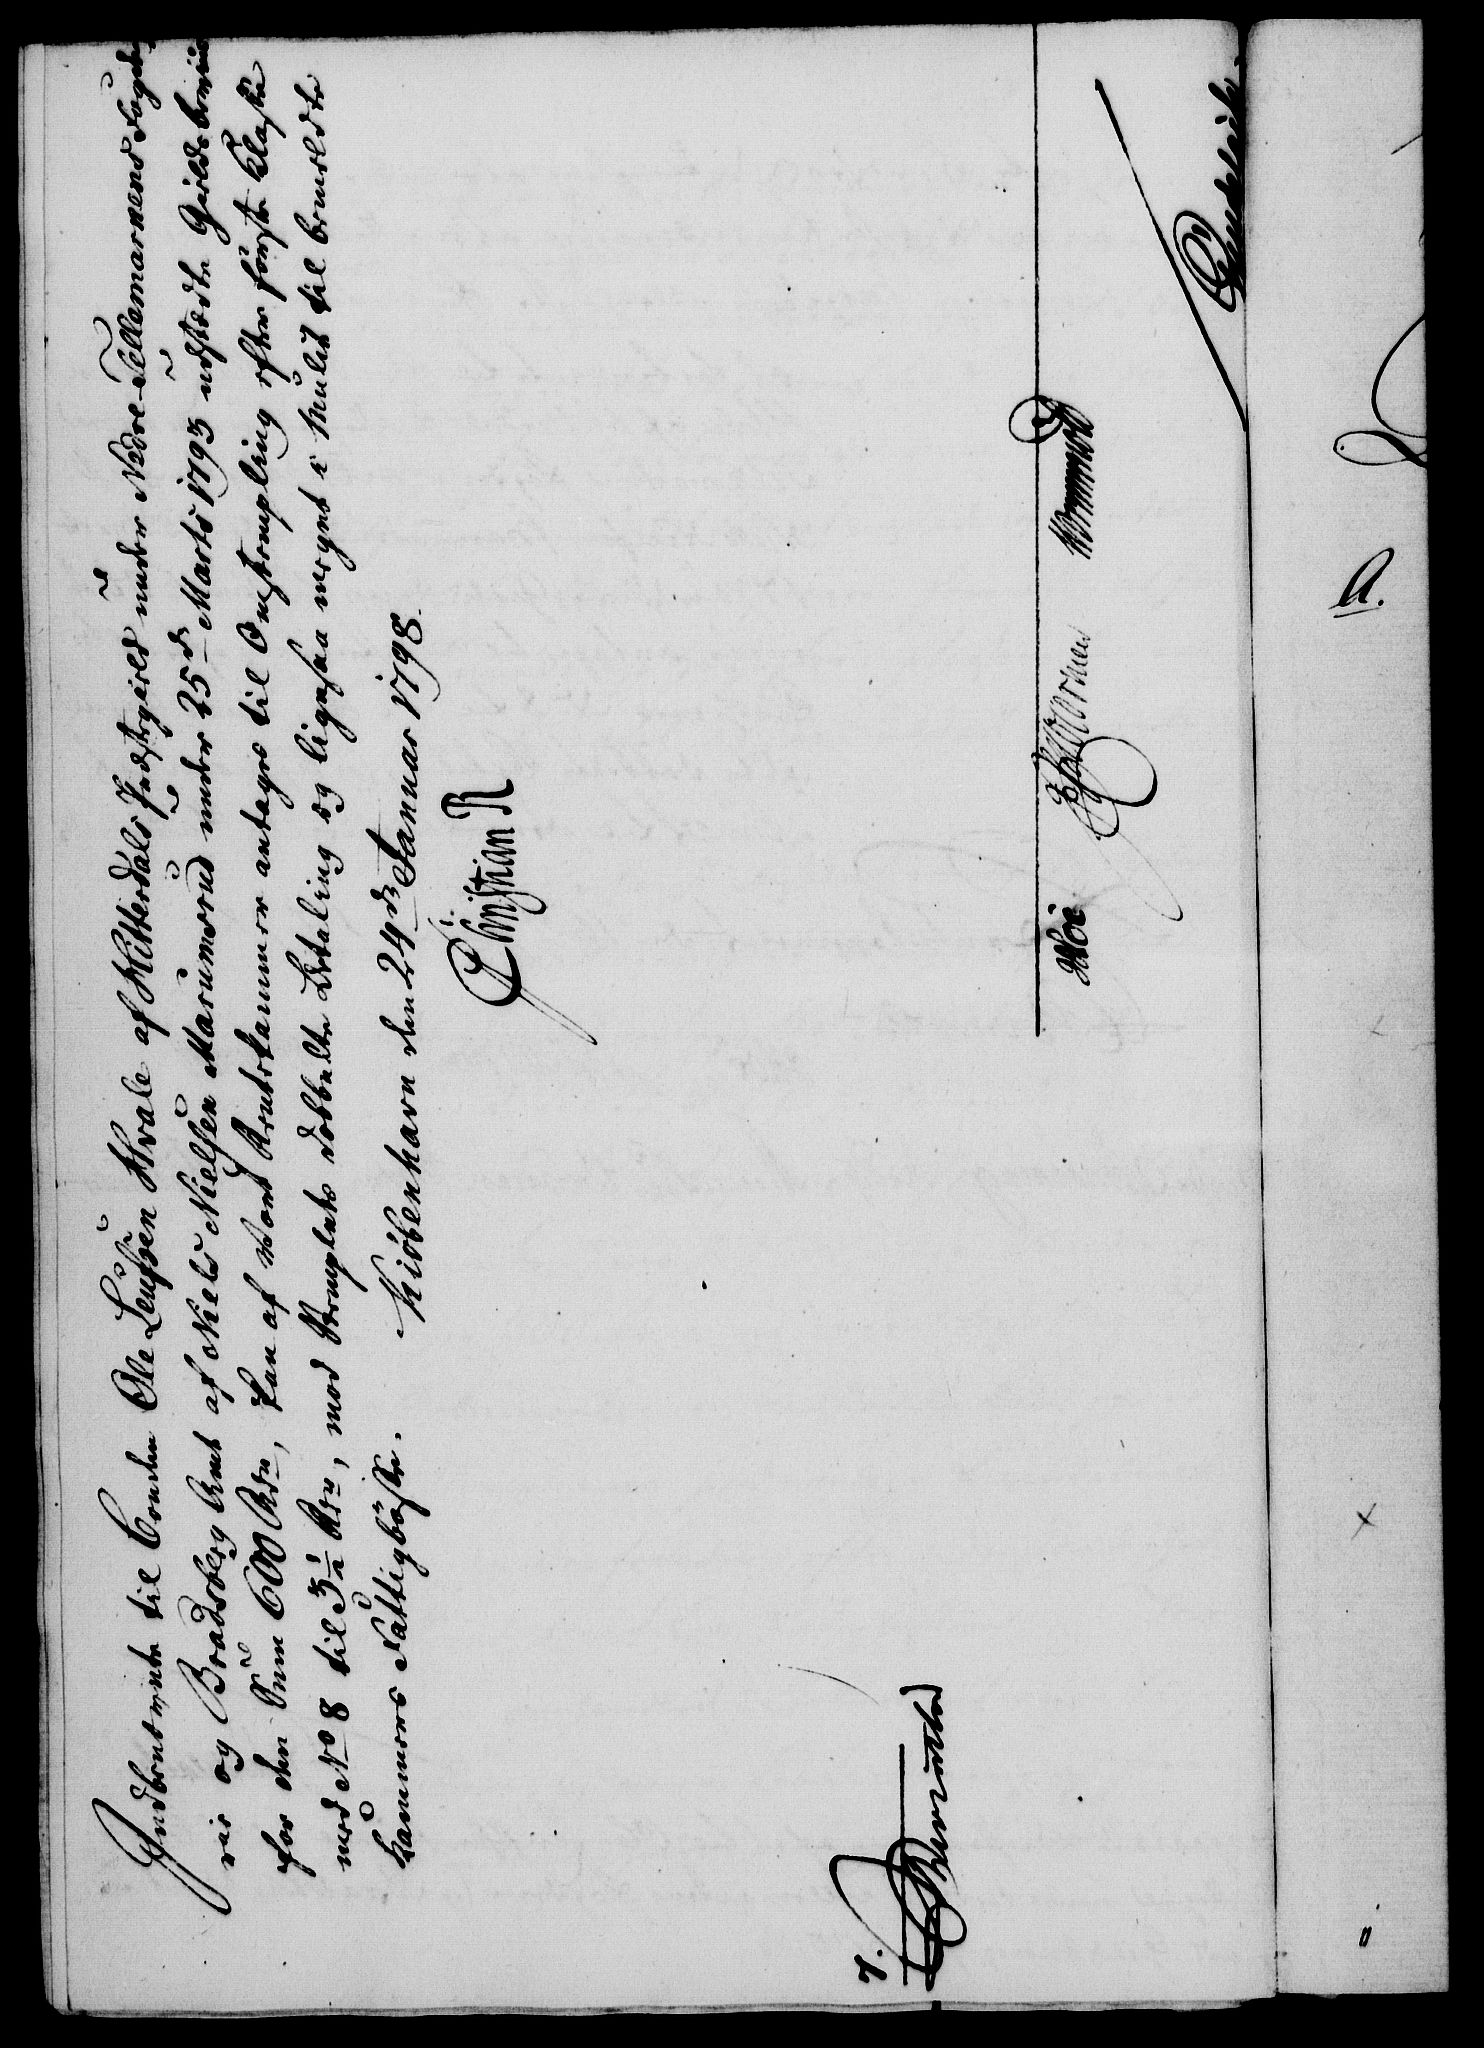 Indbemeldte til Bonden Ole Leufsen Hvale af Hitterdals Præstegield under Nedre-Tellemarkens Fogde-
rie og Bradsberg Amt af Niels Nielsen Marumsrud under 25de Marts 1793 udstædte Gieldsbeviis
for den Sum 600 Rdr, kan af Vort Rentekammer antages til Omstempling efter første Klasse
med No 8 til 3½ Rdr, mod Stemplets dobbelte Betaling og ligesaa meget i Mulct til bemeldte
Kammers Fattigbøsse.
Kiøbenhavn den 24de Januar 1798.
Christian R
7.
Hoë
Wormskiold
A.